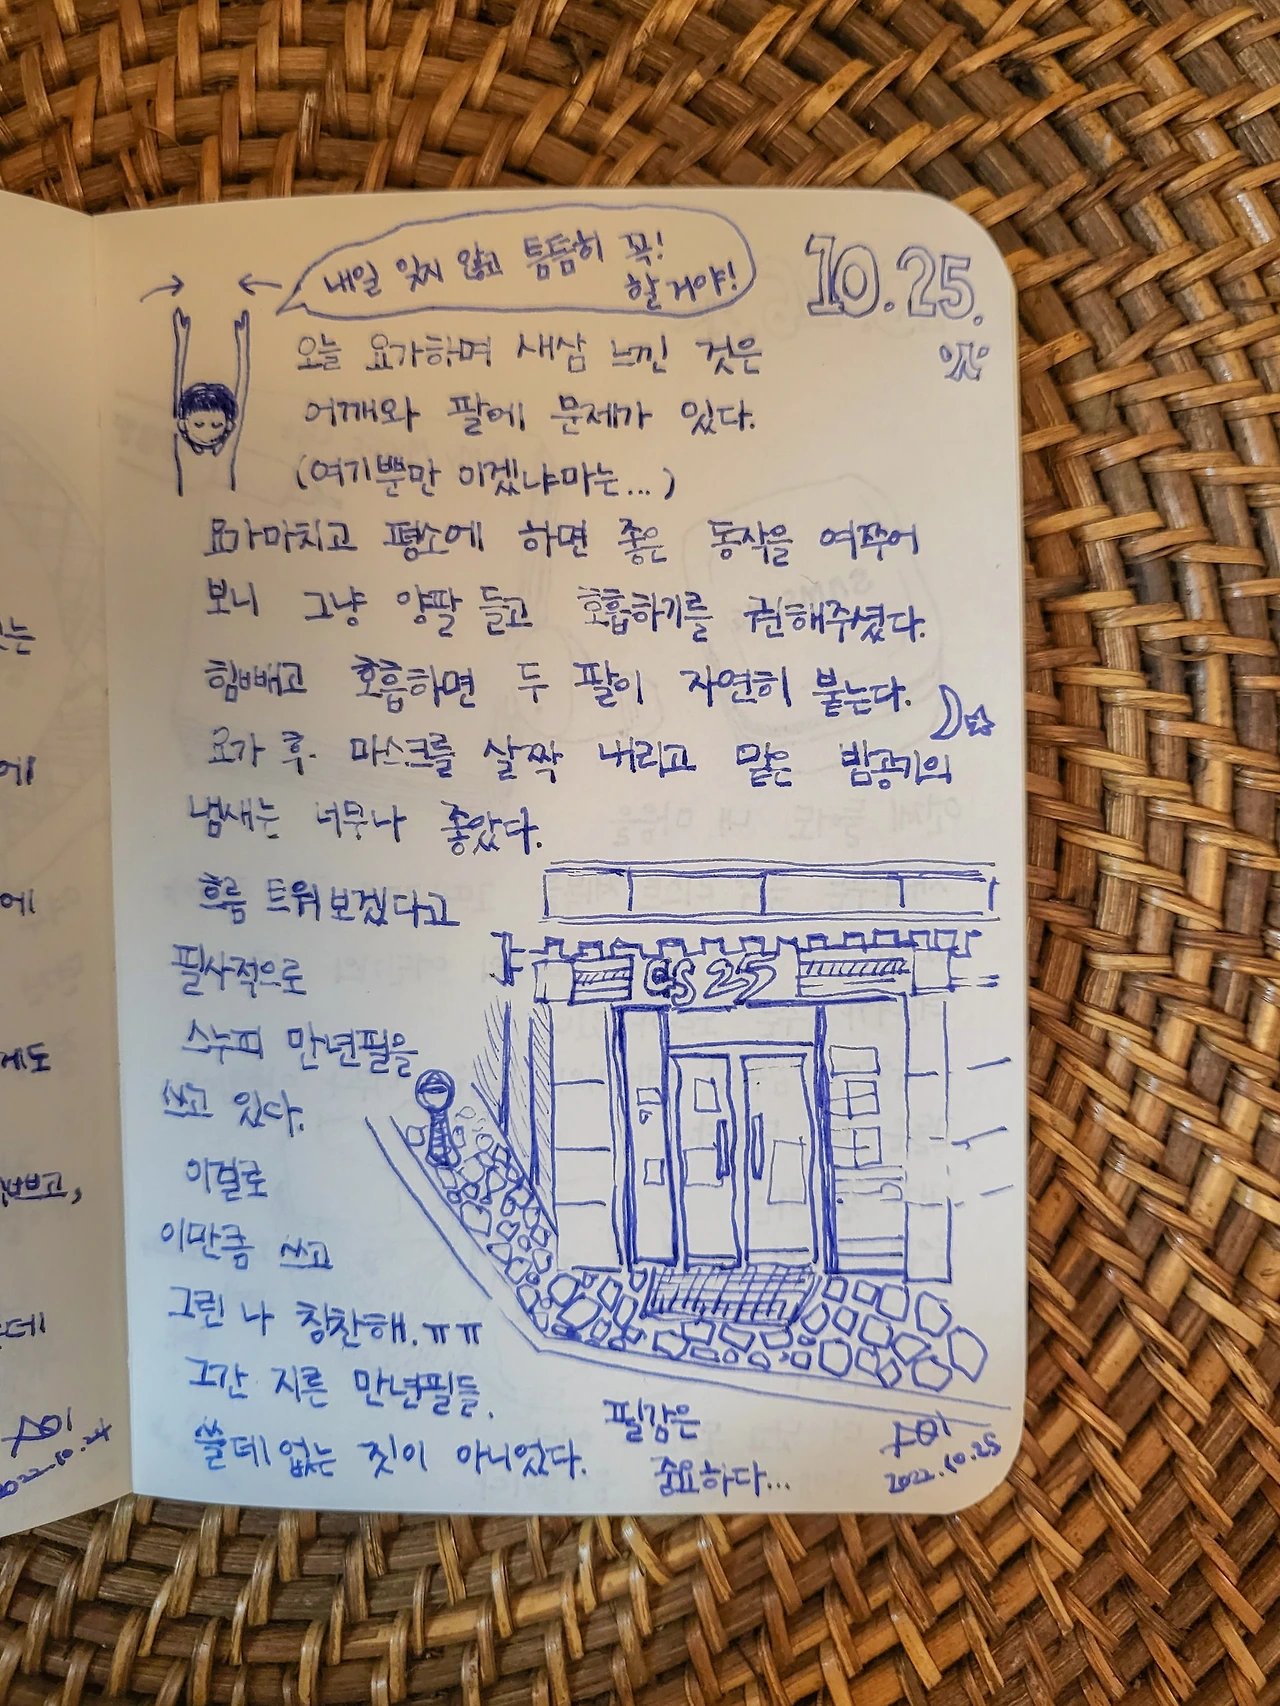 내일 잊지 않고 틈틈히 꼭!
할거야!
10.25.
火
오늘 요가하며 새삼 느낀 것은
어깨와 팔에 문제가 있다.
(여기뿐만 이겠냐마는...)
요가마치고 평소에 하면 좋은 동작을 여쭈어
보니 그냥 양팔 들고 호흡하기를 권해주셨다.
힘빼고 호흡하면 두 팔이 자연히 붙는다.
요가 후. 마스크를 살짝 내리고 맡은 밤공기의
냄새는 너무나 좋았다.
흐름 트워보겠다고
필사적으로
스누피 만년필을
쓰고 있다.
이걸로
이만큼 쓰고
그린 나 칭찬해.ㅠㅠ
그간 지른 만년필들.
쓸데없는 짓이 아니었다.
GS25
필감은
중요하다...
2022.10.25
는
에
에
게도
쁘고,
데
2022.10.24